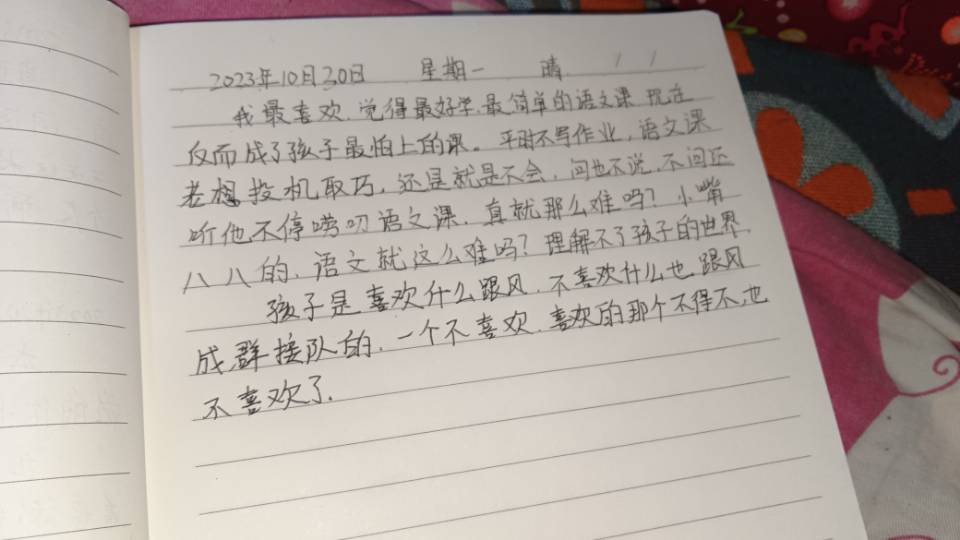 2023年10月30日 星期一 晴
我最喜欢.觉得最好学.最简单的语文课.现在
反而成了孩子最怕上的课。平时不写作业,语文课
老想投机取巧,还是就是不会,问也不说,不问还
听他不停唠叨语文课,真就那么难吗?小嘴
八八的,语文就这么难吗?理解不了孩子的世界.
孩子是喜欢什么跟风.不喜欢什么也跟风
成群接队的.一个不喜欢.喜欢的那个不得不也
不喜欢了.